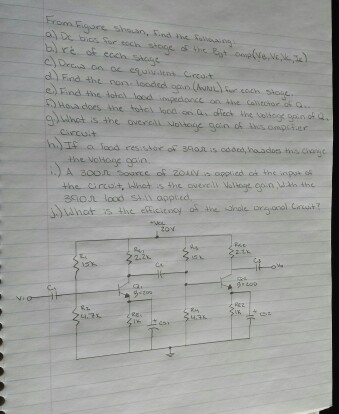 From Figure shown, Find the following:
a) Dc bias for each stage of the BJT amp (VB, VE, Vc, Ic)
b) r'e of each stage
c) Draw an ac equivalent Circuit
d) Find the non-loaded gain (AvNL) for each stage
e) Find the total load impedance on the Collector of Q1
f) How does the total load on Q1 affect the voltage gain of Q1
g) What is the overall voltage gain of this amplifier
Circuit
h) If a load resistor of 390Ω is added, how does this change
the voltage gain
i) A 300Ω source of 20uV is applied at the input of
the circuit, What is the overall voltage gain, with the
390Ω load still applied.
j) What is the efficiency of the whole original Circuit?
+Vcc
20V
R1
15k
Rc1
2.2k
R3
15k
Rc2
2.2k
C1
C3
Vi
Q1
β=200
Q2
β=200
R2
4.7k
RE1
1k
R4
4.7k
RE2
1k